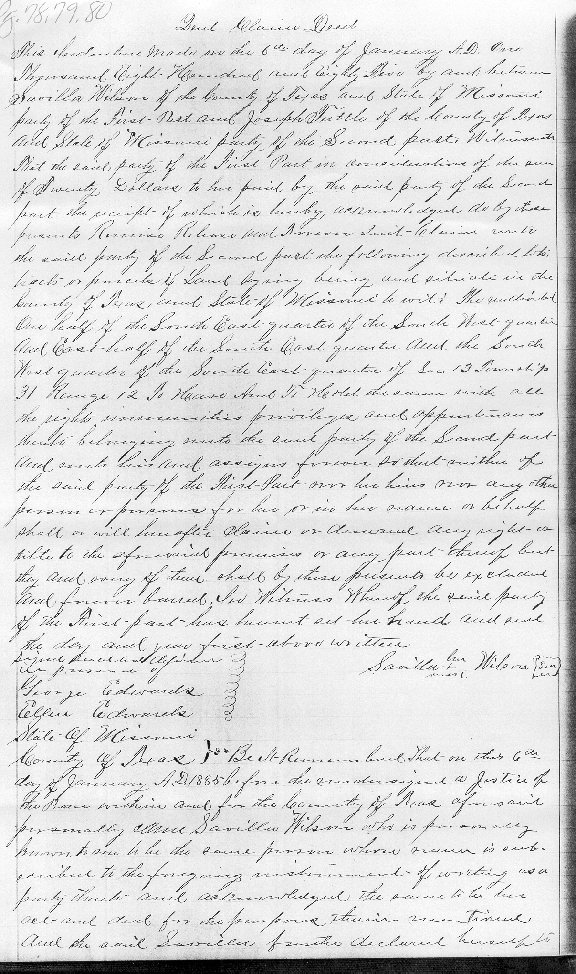 Pg. 78, 79, 80
Quit Claim Deed
This Indenture Made on the 6th day of January A.D. One
Thousand Eight Hundred and Eighty Five by and between
Savilla Wilson of the County of Texas and State of Missouri
party of the First Part and Joseph Tuttle of the County of Texas
and State of Missouri party of the Second part. Witnesseth
That the said party of the First Part in consideration of the sum
of Twenty Dollars to her paid by the said party of the Second
part the receipt of which is hereby acknowledged do by these
presents Remise Release and Forever Quit-Claim unto
the said party of the Second part the following described
tracts or parcels of Land lying being and situate in the
County of Texas and State of Missouri to wit: The undivided
One half of the South East quarter of the South West quarter
and East half of the South East quarter and the South
West quarter of the South East quarter of Sec 13 Township
31 Range 12 To Have And To Hold the same with all
the rights immunities privileges and appurtenances
thereto belonging unto the said party of the Second part
and unto his and assigns forever so that neither of
the said party of the First Part nor her heirs nor any other
person or persons for her or in her name or behalf
shall or will hereafter claim or demand any right or
title to the aforesaid premises or any part thereof but
they and every of them shall by these presents be excluded
and forever barred. In Witness Whereof the said party
of the First part has hereunto set her hand and seal
the day and year first above written
in presence of
Savilla her mark Wilson
George Edwards
Ellen Edwards
State of Missouri
County of Texas } ss Be It Remembered That on this 6th
day of January A.D. 1885 before the undersigned a Justice of
the Peace within and for the County of Texas aforesaid
personally came Savilla Wilson who is personally
known to me to be the same person whose name is sub-
scribed to the foregoing instrument of writing as a
party thereto and acknowledged the same to be her
act and deed for the purposes therein mentioned
And the said Savilla further declared herself to